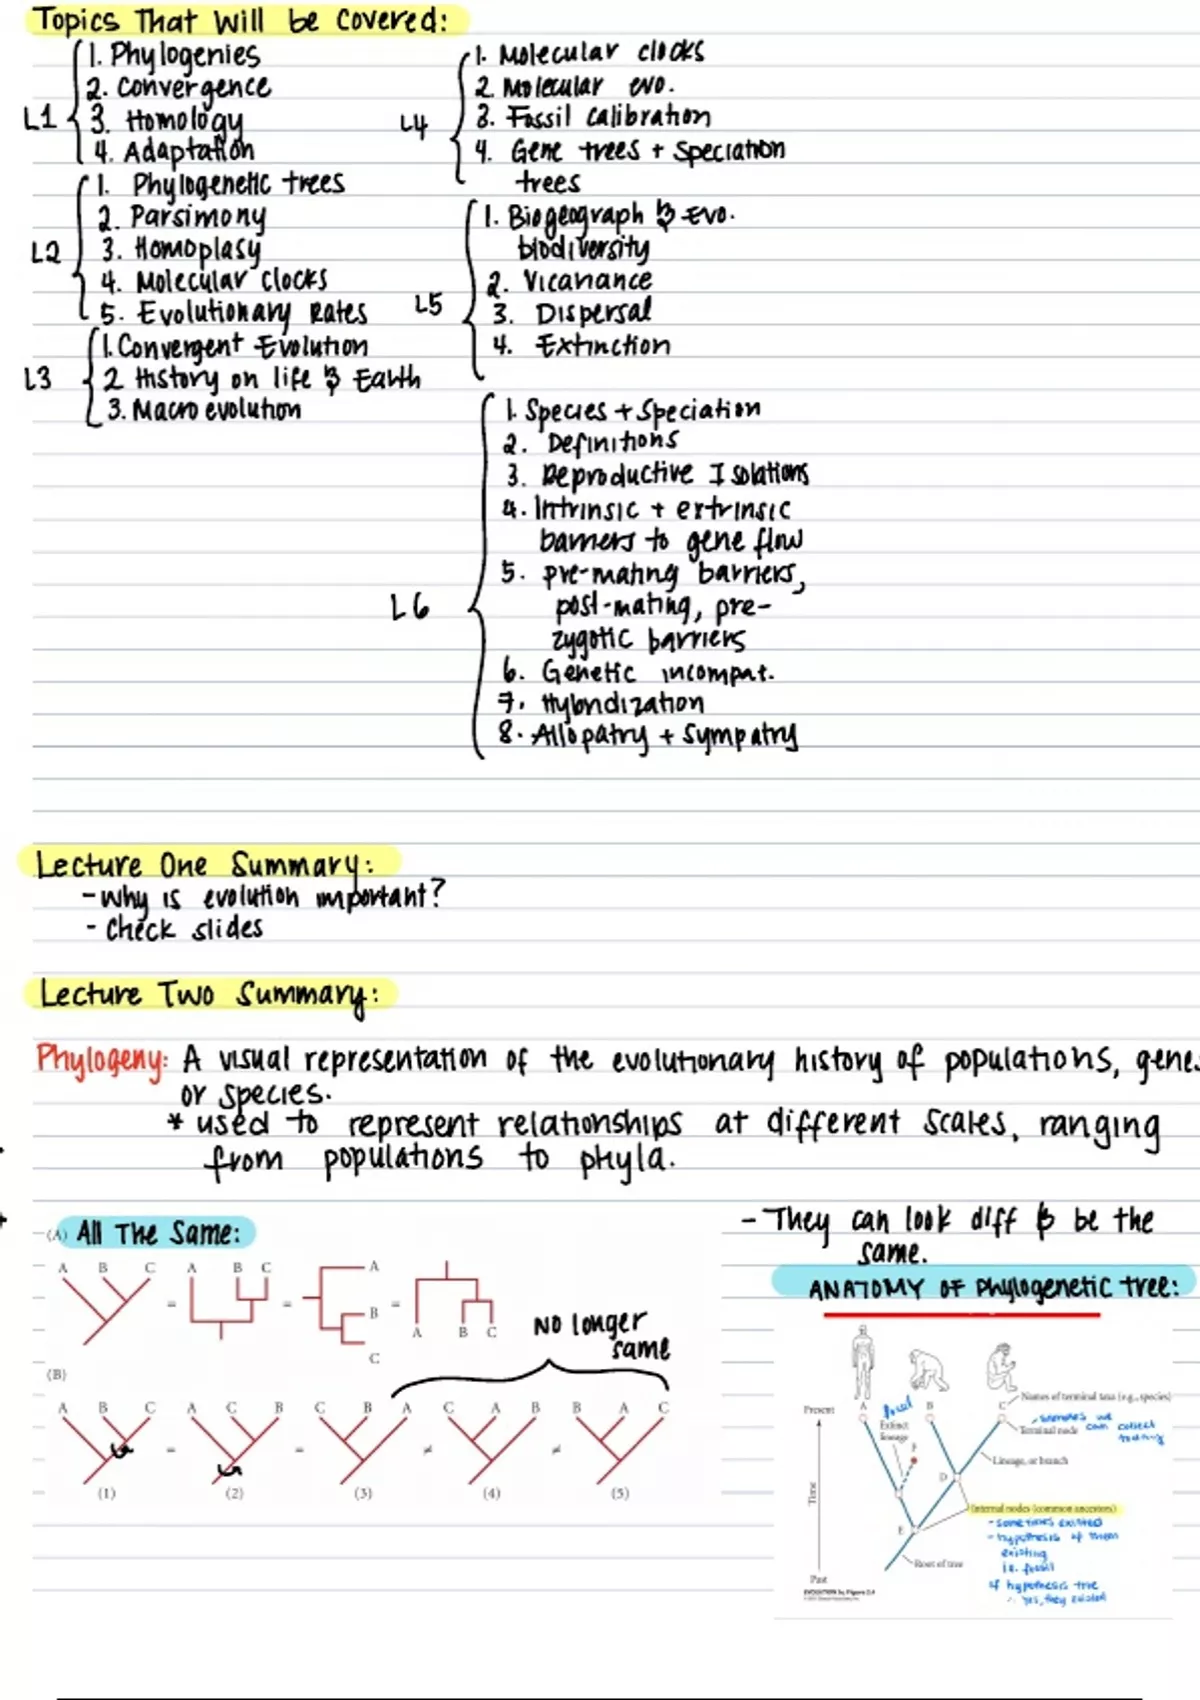 Topics That Will be Covered:
L1
1. Phylogenies
2. Convergence
3. Homology
4. Adaptation
L2
1. Phylogenetic trees
2. Parsimony
3. Homoplasy
4. Molecular clocks
5. Evolutionary Rates
L3
1. Convergent Evolution
2 History on life & Earth
3. Macro evolution
L4
1. Molecular clocks
2. Molecular evo.
3. Fossil calibration
4. Gene trees + Speciation
trees
L5
1. Biogeograph & Evo.
biodiversity
2. Vicariance
3. Dispersal
4. Extinction
L6
1. Species + Speciation
2. Definitions
3. Reproductive Isolations
4. Intrinsic + extrinsic
barriers to gene flow
5. pre-mating barriers,
post-mating, pre-
zygotic barriers
6. Genetic incompat.
7. Hybridization
8. Allopatry + Sympatry
Lecture One Summary:
- Why is evolution important?
- Check slides
Lecture Two Summary:
Phylogeny: A visual representation of the evolutionary history of populations, genes
or species.
* used to represent relationships at different scales, ranging
from populations to phyla.
(A) All The Same:
A B C A B C A
= = B =
C
A B C
No longer
same
(B)
A B C A C B C B A C A B B A C
= = ≠ ≠
(1) (2) (3) (4) (5)
- They can look diff & be the
same.
ANATOMY OF Phylogenetic tree:
Names of terminal taxa (e.g., species)
Present
A
fossil
B
C
Extinct
lineage
F
Terminal node
can collect
Lineage, or branch
D
Time
Internal nodes (common ancestors)
- sometimes existed
- hypothesis of them
existing
i.e. fossil
if hypothesis true
∴ yes, they existed
E
Root of tree
Past
EVOLUTION 3e, Figure 2.4